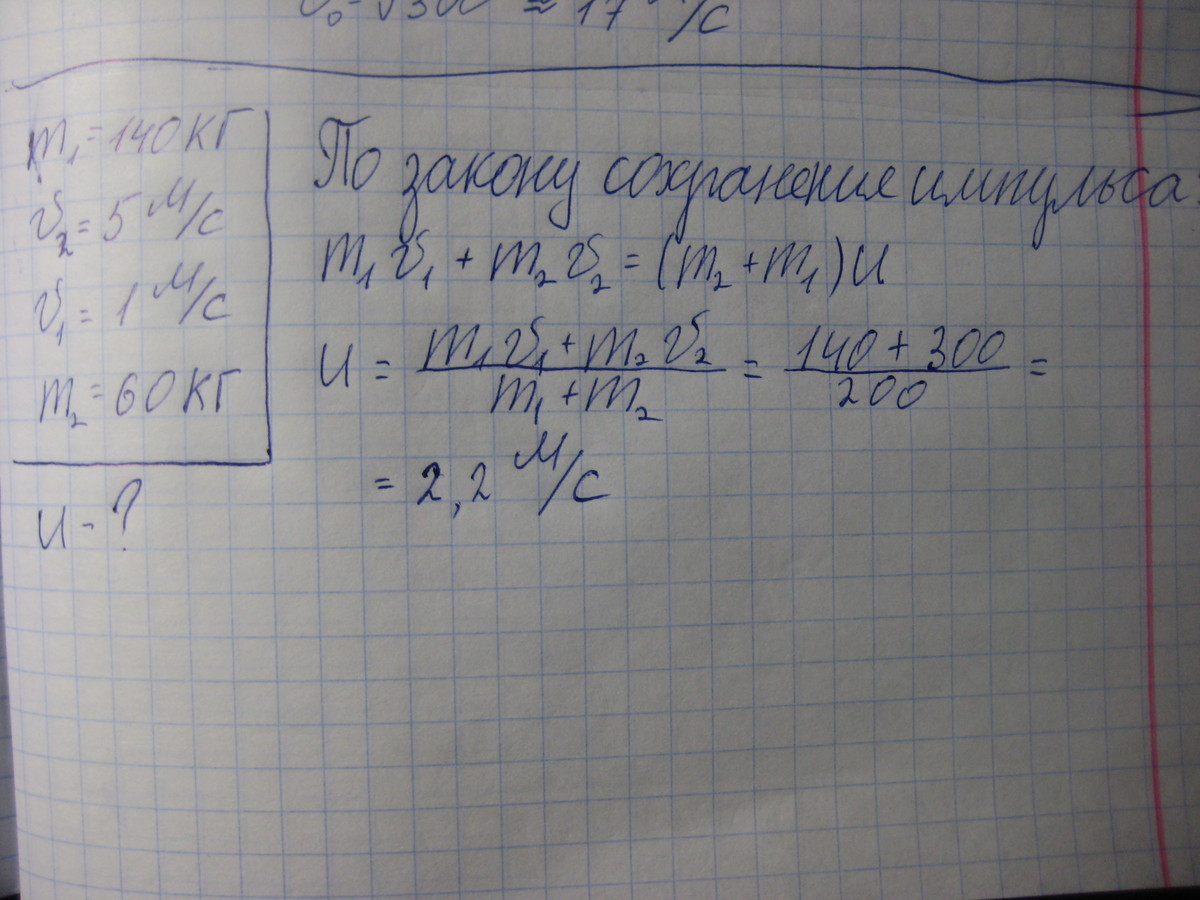 v₀ = √300 ≈ 17 м/с
m₁ = 140 кг
v₂ = 5 м/с
v₁ = 1 м/с
m₂ = 60 кг
u - ?
По закону сохранение импульса:
m₁v₁ + m₂v₂ = (m₂ + m₁)u
u = (m₁v₁ + m₂v₂)/(m₁ + m₂) = (140 + 300)/200 =
= 2,2 м/с